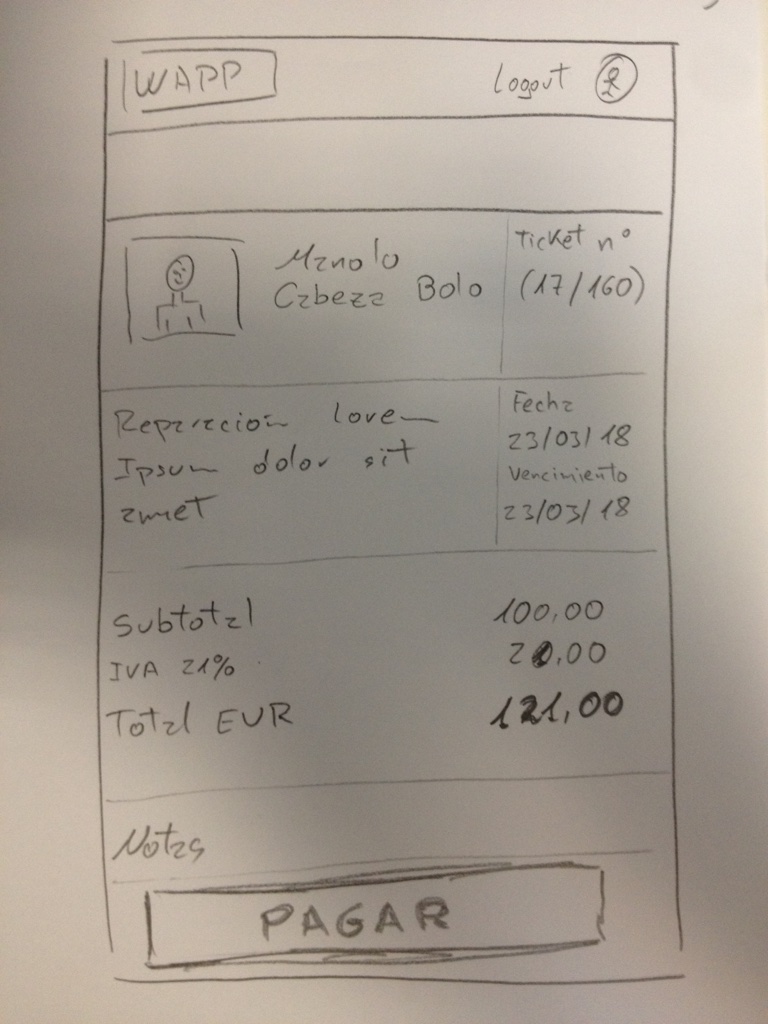 WAPP
Logout
Manolo
Cabeza Bolo
Ticket nº
(17/160)
Reparacion lorem
Ipsum dolor sit
amet
Fecha
23/03/18
Vencimiento
23/03/18
Subtotal 100,00
IVA 21% 20,00
Total EUR 121,00
Notas
PAGAR